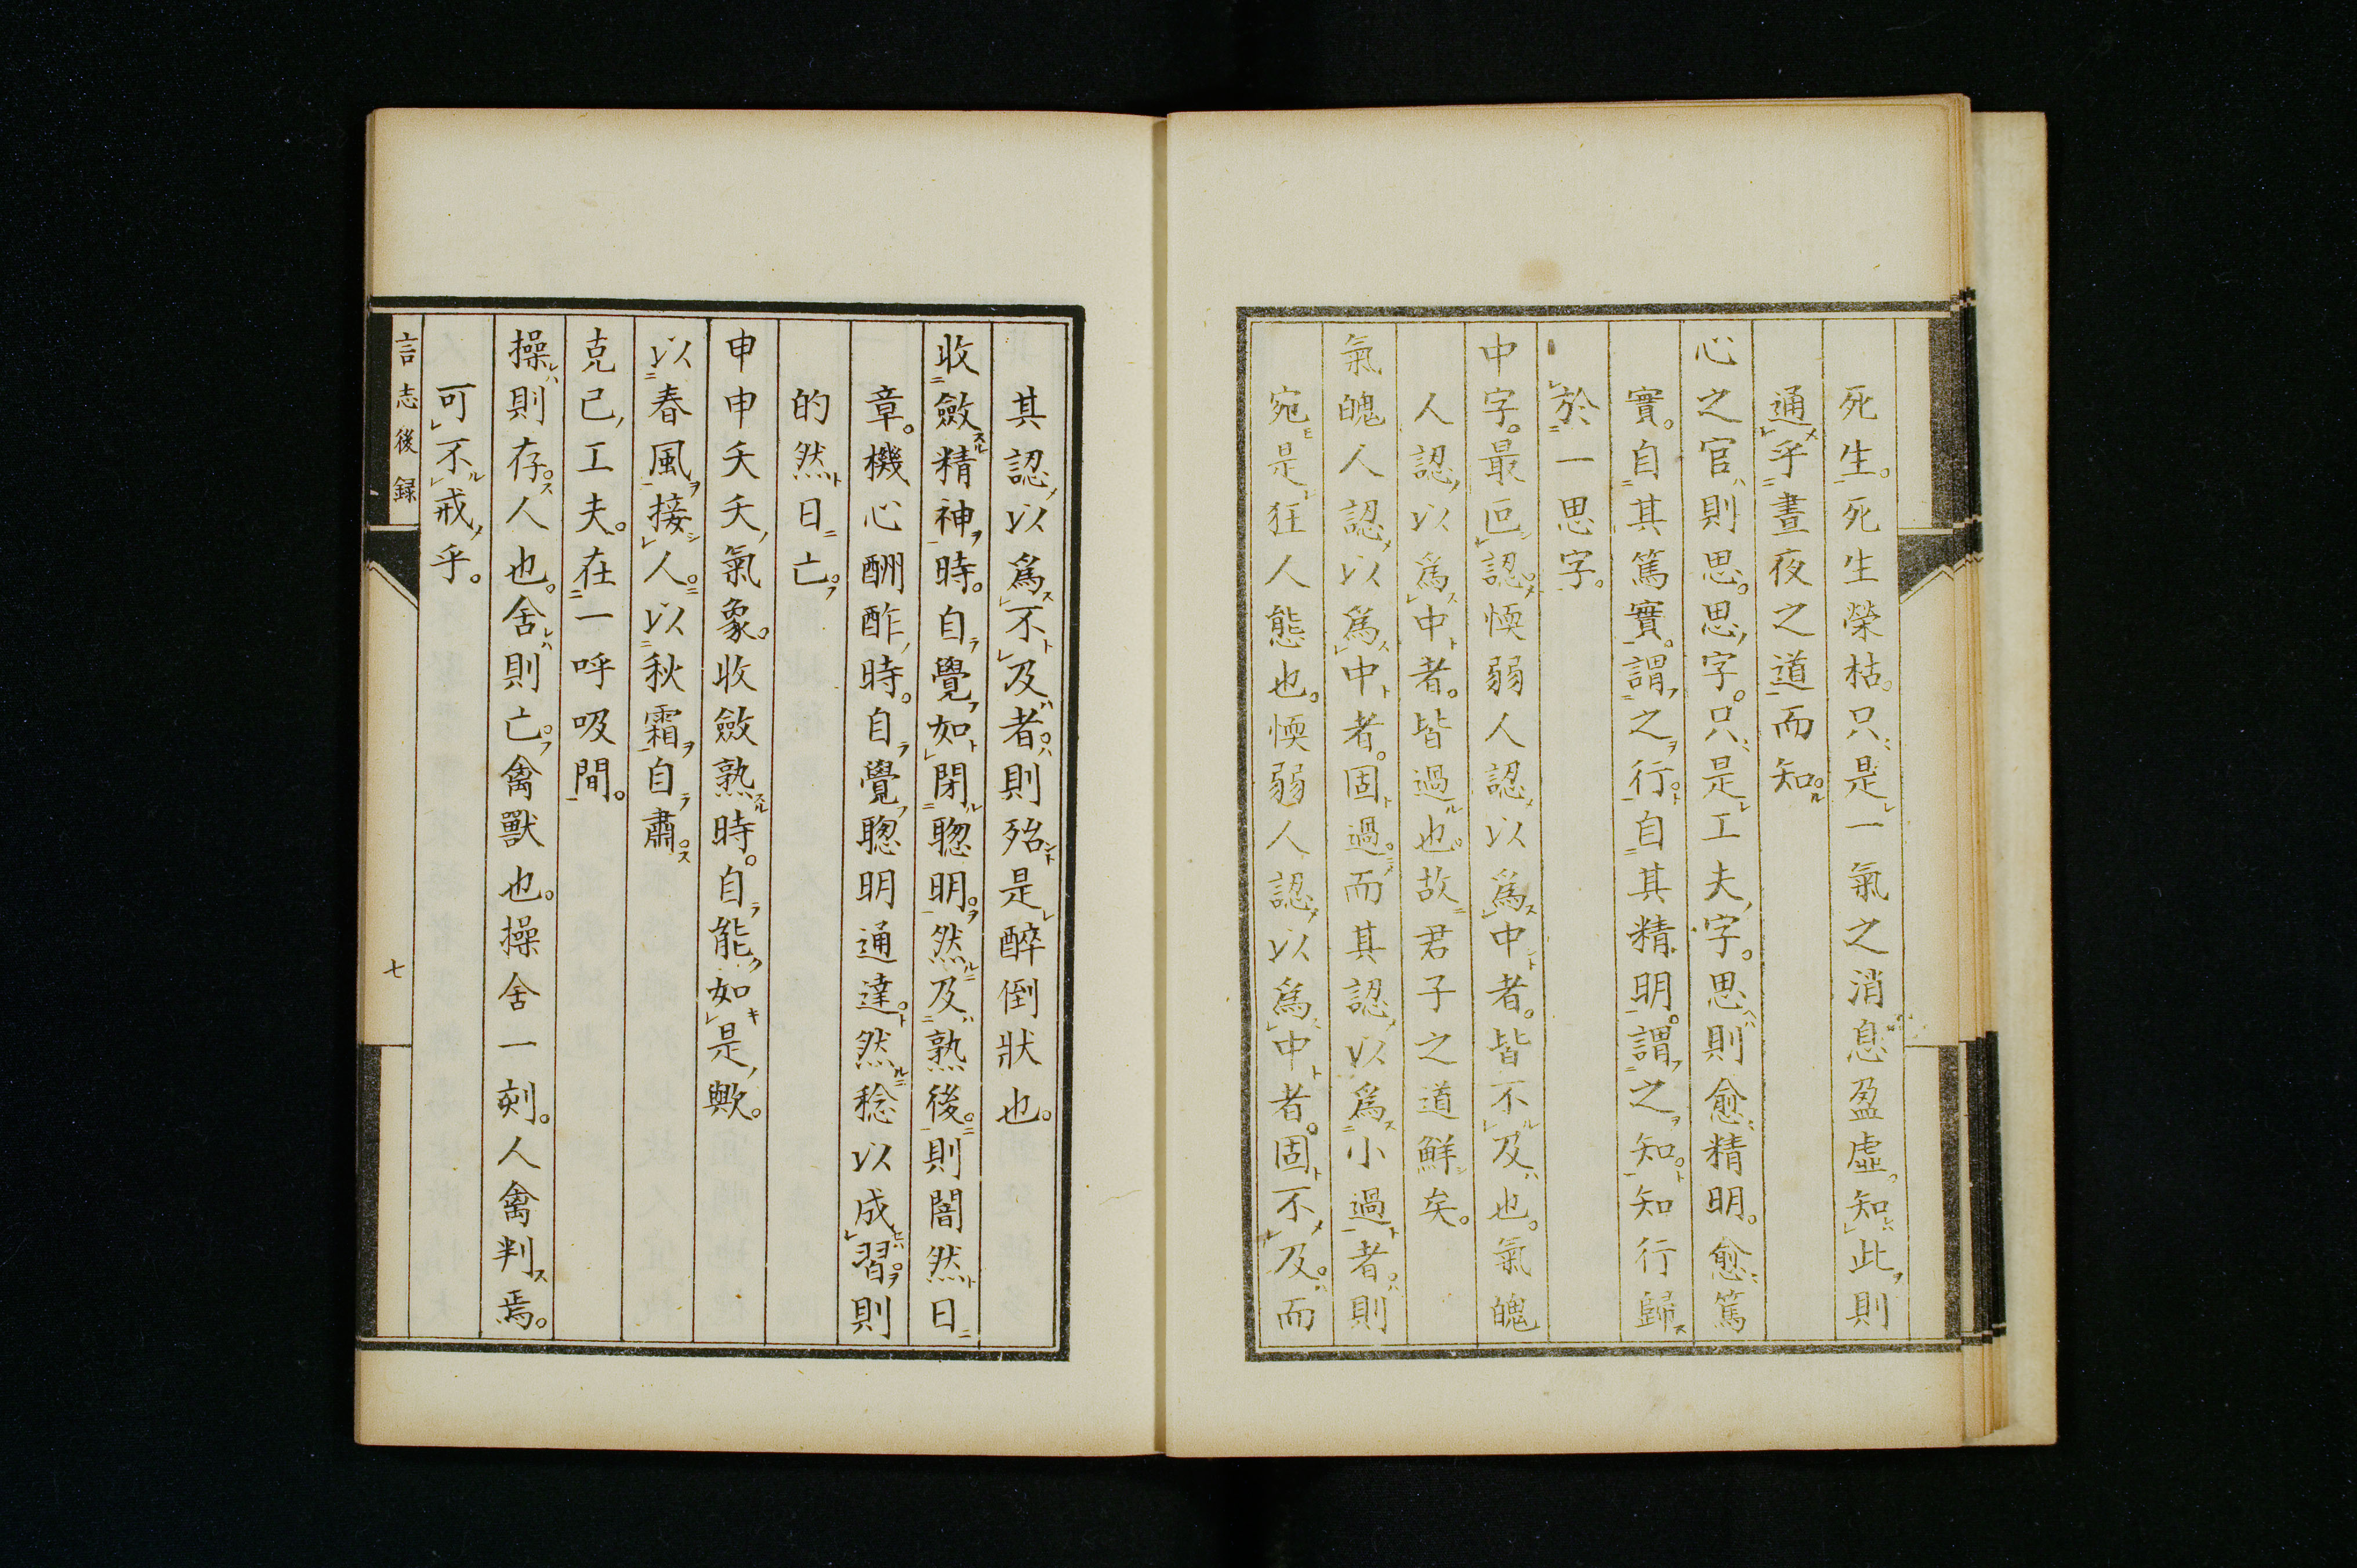 死生。死生榮枯。只是一氣之消息盈虛。知此則
通乎晝夜之道而知。
心之官則思。思字。只是工夫字。思則愈精明。愈篤
實。自其篤實。謂之行。自其精明。謂之知。知行歸
於一思字。
中字。最叵認。愞弱人認以爲中者。皆不及也。氣魄
人認以爲中者。皆過也。故君子之道鮮矣。
氣魄人認以爲中者。固過。而其認以爲小過者。則
宛是狂人態也。愞弱人認以爲中者。固不及。而
其認以爲不及者。則殆是醉倒狀也。
收斂精神時。自覺如閉聰明。然及熟後。則闇然日
章。機心酬酢時。自覺聰明通達。然稔以成習。則
的然日亡。
申申夭夭氣象。收斂熟時。自能如是歟。
以春風接人。以秋霜自肅。
克己工夫。在一呼吸間。
操則存。人也。舍則亡。禽獸也。操舍一刻。人禽判焉。
可不戒乎。
言志後録
七